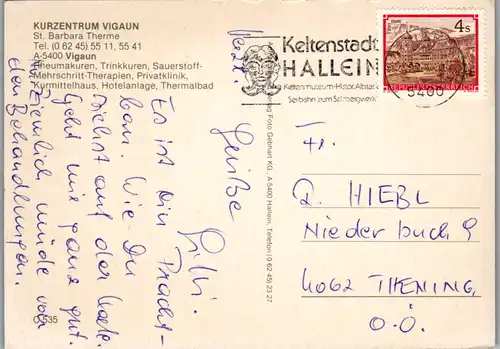 KURZENTRUM VIGAUN
St. Barbara Therme
Tel. (0 62 45) 55 11, 55 41
A-5400 Vigaun
Rheumakuren, Trinkkuren, Sauerstoff-
Mehrschritt-Therapien, Privatklinik,
Kurmittelhaus, Hotelanlage, Thermalbad
Keltenstadt
HALLEIN
Keltenmuseum-Histor. Altstadt
Seilbahn zum Salzbergwerk
5400
4 S
REPUBLIK ÖSTERREICH
Verlag Foto Gebhart KG., A-5400 Hallein, Telefon (0 62 45) 23 27
Lilli.
Es ist ein Pracht-
bau. Wie Du
siehst auf der Karte.
Geht mir ganz gut.
Ziemlich müde von
den Behandlungen.
Grüße
Fr.
R. HIEBL
Niederbuch 9
4062 THENING
O.Ö.